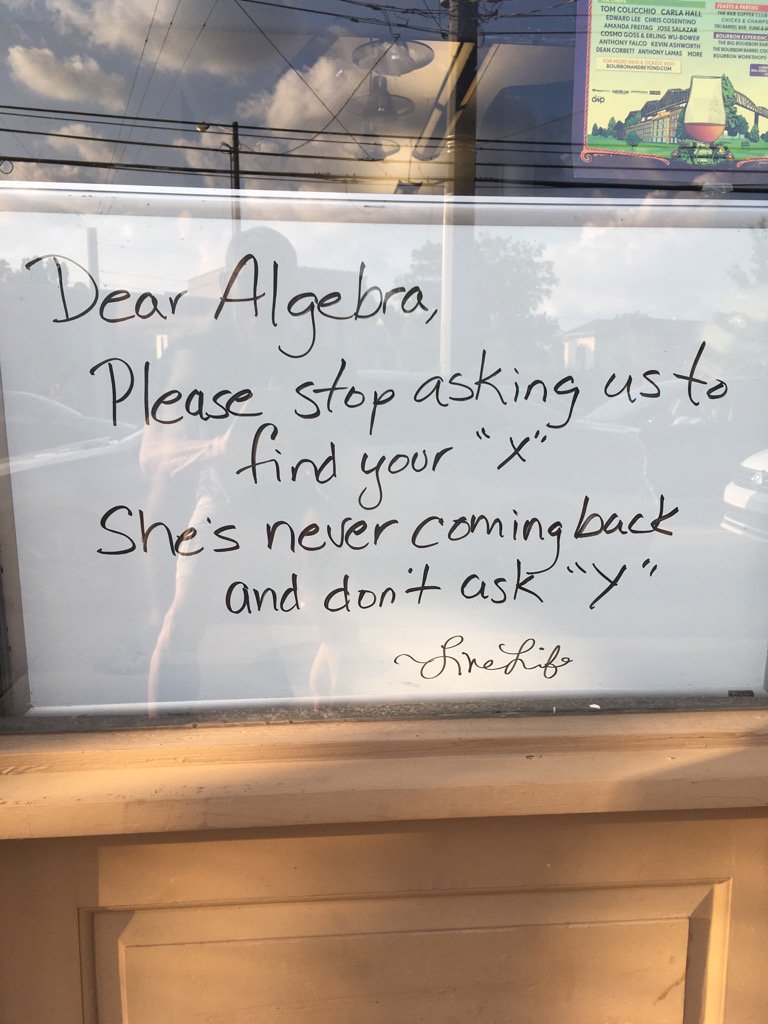 TOM COLICCHIO CARLA HALL
EDWARD LEE CHRIS COSENTINO
AMANDA FREITAG JOSE SALAZAR
COSMO GOSS & ERLING WU-BOWER
ANTHONY FALCO KEVIN ASHWORTH
DEAN CORBETT ANTHONY LAMAS MORE
FOR MORE INFO & TICKETS VISIT
BOURBONANDBEYOND.COM
FEASTS & PARTIES
BOURBON EXPERIENC
THE BIG BOURBON BAR
THE BOURBON BARREL
BOURBON WORKSHOPS
Dear Algebra,
Please stop asking us to
find your "x"
She's never coming back
and don't ask "y"
~LiveLife